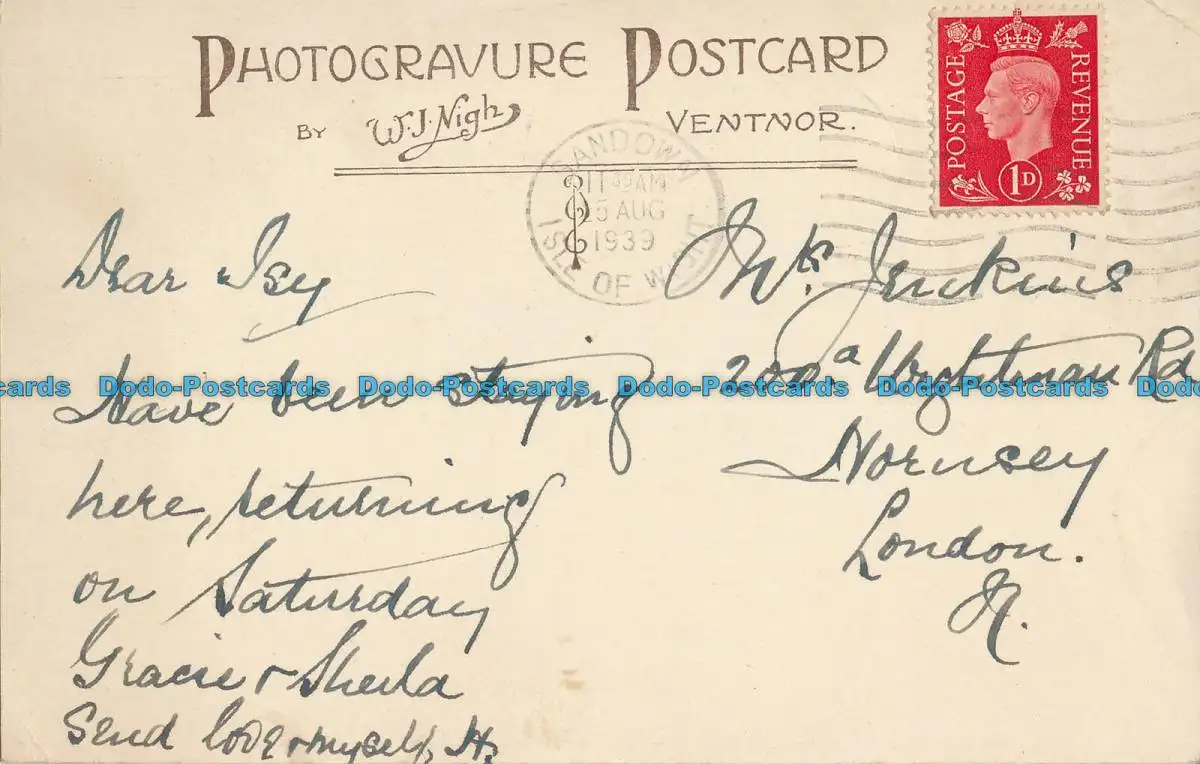 PHOTOGRAVURE POSTCARD
BY W.J. Nigh VENTNOR.
POSTAGE REVENUE
1D
SANDOWN
11 30 AM
25 AUG
1939
ISLE OF WIGHT
Dear Isy
Have been staying
here, returning
on Saturday
Gracie & Sheila
Send love & myself, H.
Mrs. Jenkins
200a Wightman Rd
Hornsey
London.
N.
Dodo-Postcards Dodo-Postcards Dodo-Postcards Dodo-Postcards Dodo-Postcards Dodo-Postcards Dodo-Postcards Dodo-